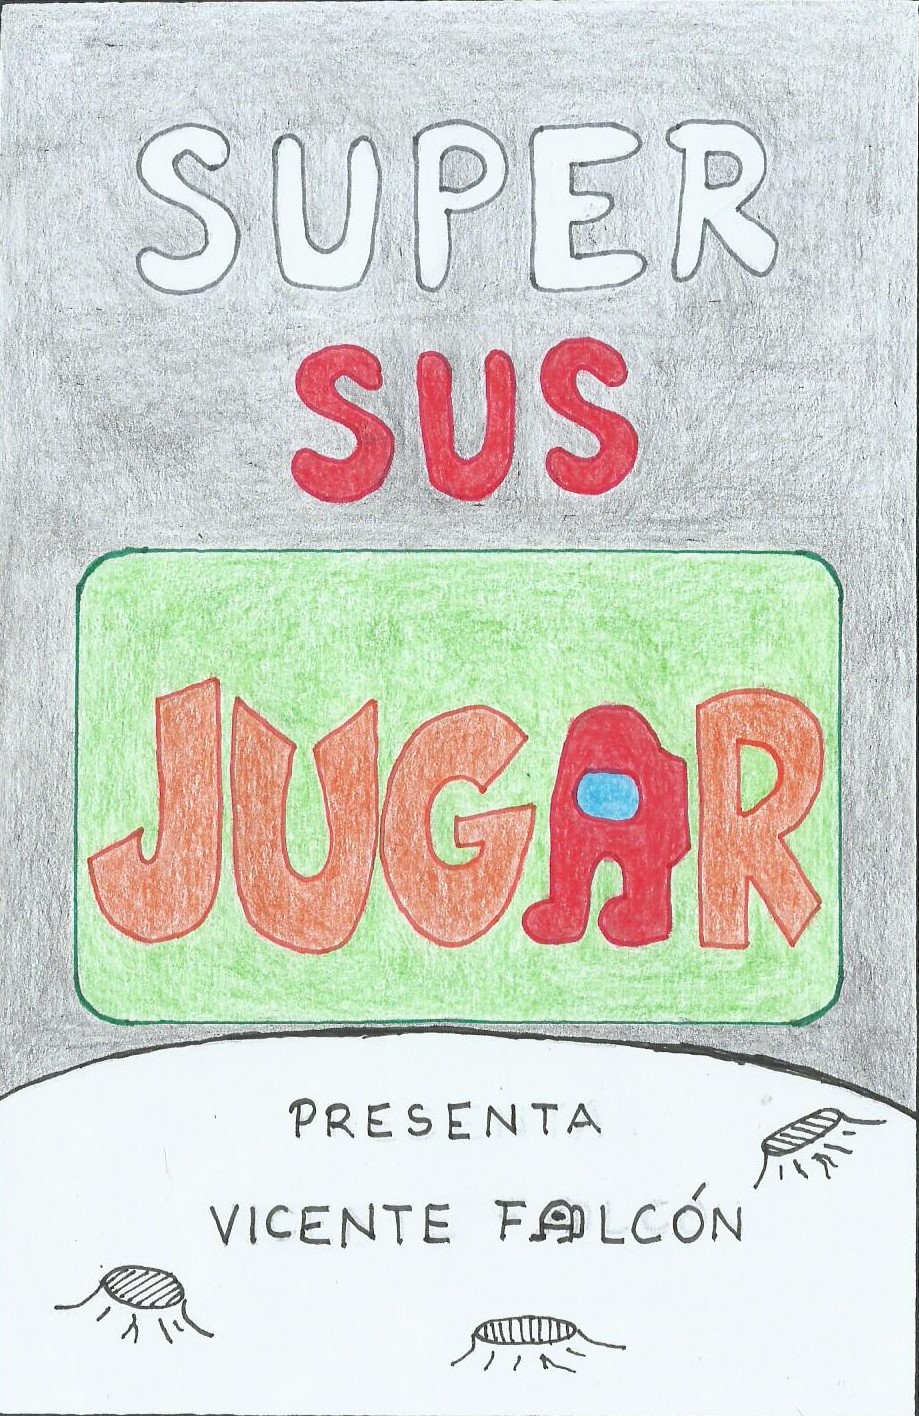 SUPER
SUS
JUGAR
PRESENTA
VICENTE FALCÓN